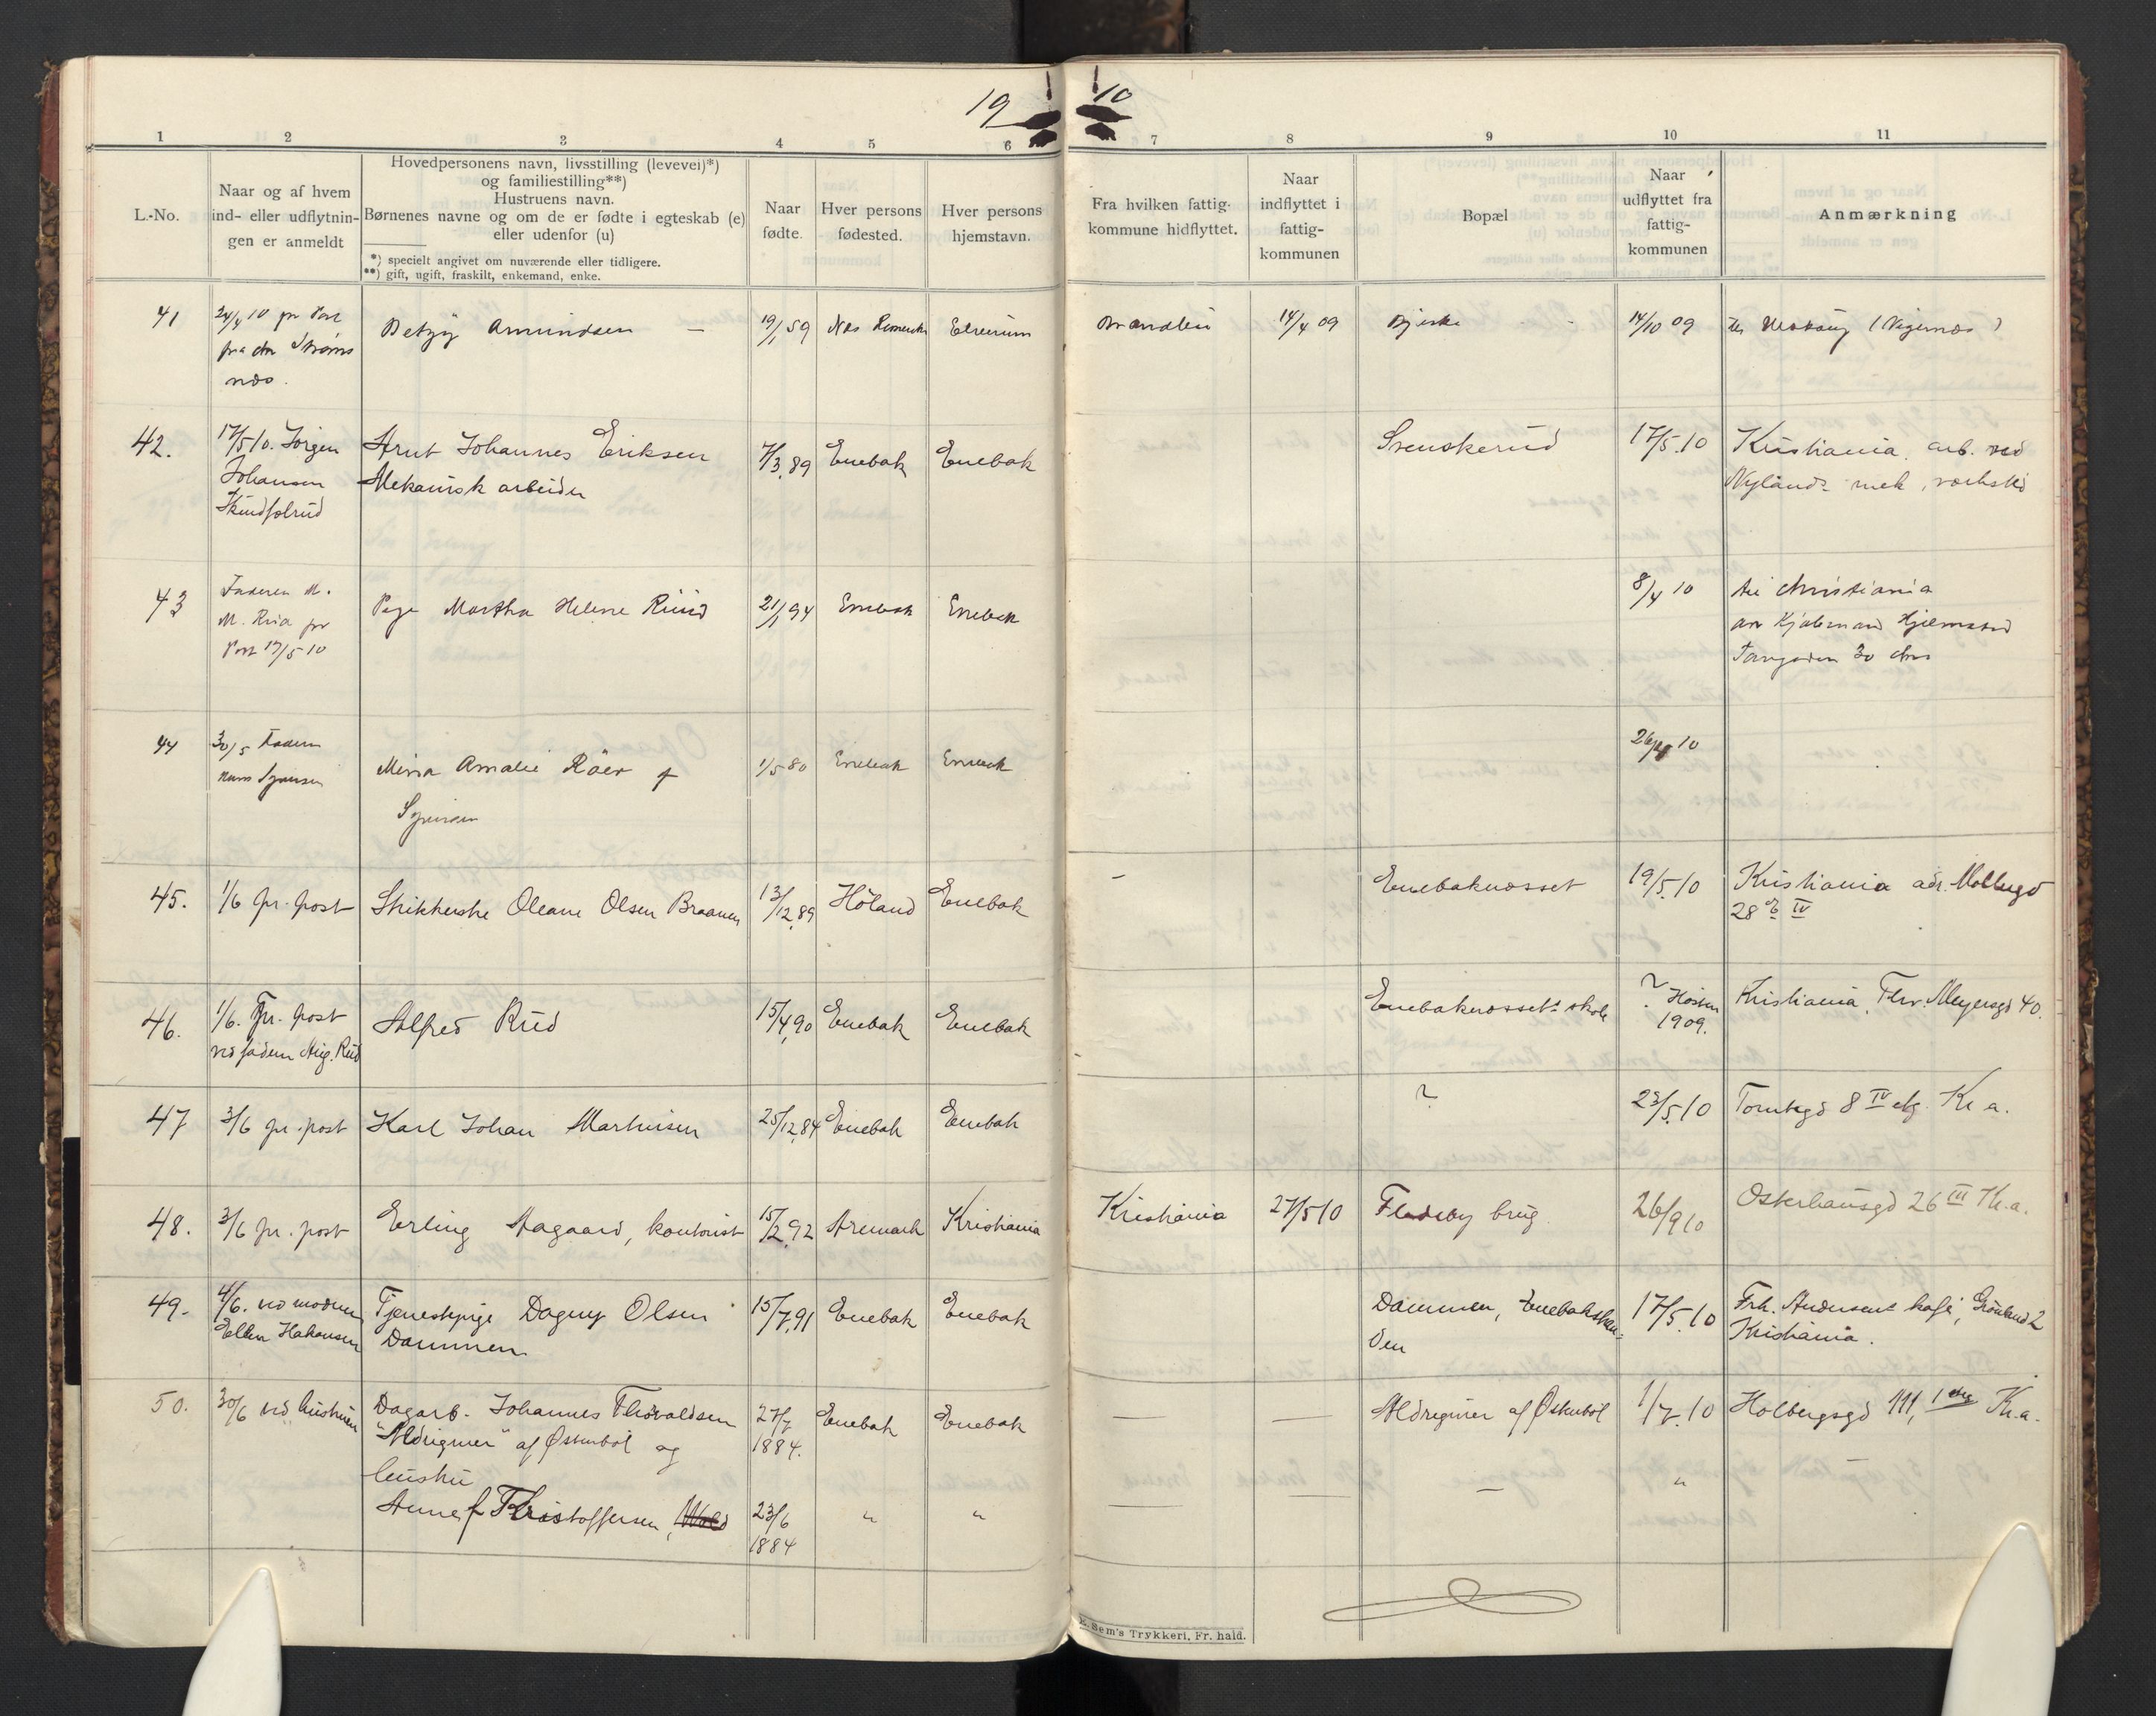 19 10
1 2 3 4 5 6 7 8 9 10 11
L.-No.
Naar og af hvem
ind- eller udflytnin-
gen er anmeldt
Hovedpersonens navn, livsstilling (levevei)*)
og familiestilling**)
Hustruens navn.
Børnenes navne og om de er fødte i egteskab (e)
eller udenfor (u)
*) specielt angivet om nuværende eller tidligere.
**) gift, ugift, fraskilt, enkemand, enke.
Naar
fødte.
Hver persons
fødested.
Hver persons
hjemstavn.
Fra hvilken fattig-
kommune hidflyttet.
Naar
indflyttet i
fattig-
kommunen
Bopæl
Naar
udflyttet fra
fattig-
kommunen
Anmærkning
41
24/4 10 pr Post
fra
næs.
Betzy Amundsen —
19/1 59
Næs
Elverum
14/4 09
14/10 09
42.
17/5 10. Jörgen
Johansen
Arnt Johannes Eriksen
Mekanisk arbeider
7/3.89
Enebak
Enebak
Svenskerud
17/5.10
Kristiania, arb. ved
Nylands mek. værksted
43
Faderen M.
M. pr
Post 17/5 10
Pige Martha Helene Ruud
21/1 94
Enebak
Enebak
8/4 10
til Christiania
44
30/5 Faderen
Hans
Mina Amalie Röer f
1/5 80
Enebak
Enebak
10
45.
1/6 pr. post
Strikkerske Oleane Olsen Braanen
13/12.89
Höland
Enebak
—
Enebaknæsset
19/5.10
Kristiania adr.
28 IV
46.
1/6. pr. post
ved faderen Aug. Rud
Alfred Rud
15/4.90
Enebak
Enebak
Enebaknæssets skole
? Høsten
1909.
Kristiania, Thv. Meyersgd 40.
47
3/6 pr. post
Karl Johan Martinsen
25/12.84
Enebak
Enebak
?
23/5.10
Tomtegd 8 IV etg. Kr.a.
48.
3/6 pr. post
Erling Aagaard, kontorist
15/2.92
Aremark
Kristiania
Kristiania
27/5 10
Fladeby brug.
26/9 10
Osterhausgd 26 III Kr.a.
49.
4/6. ved moderen
Ellen Hakansen
Tjenestepige Dagny Olsen
Dammen
15/7.91
Enebak
Enebak
Dammen,
17/5.10
Frk. Andersens kafe, Grönland 2
Kristiania.
50.
30/6 ved hustruen
Dagarb. Johannes Thorvaldsen
"Aldrigmer" af Østenböl og
hustru
Anne f. Kristoffersen,
27/7
1884.
23/6
1884
Enebak
"
Enebak
"
—
—
Aldrigmer af Østenböl
—
1/7.10
"
Holbergsgd 111, 1 etg Kr.a.
E. Sem's Trykkeri, Fr.hald.